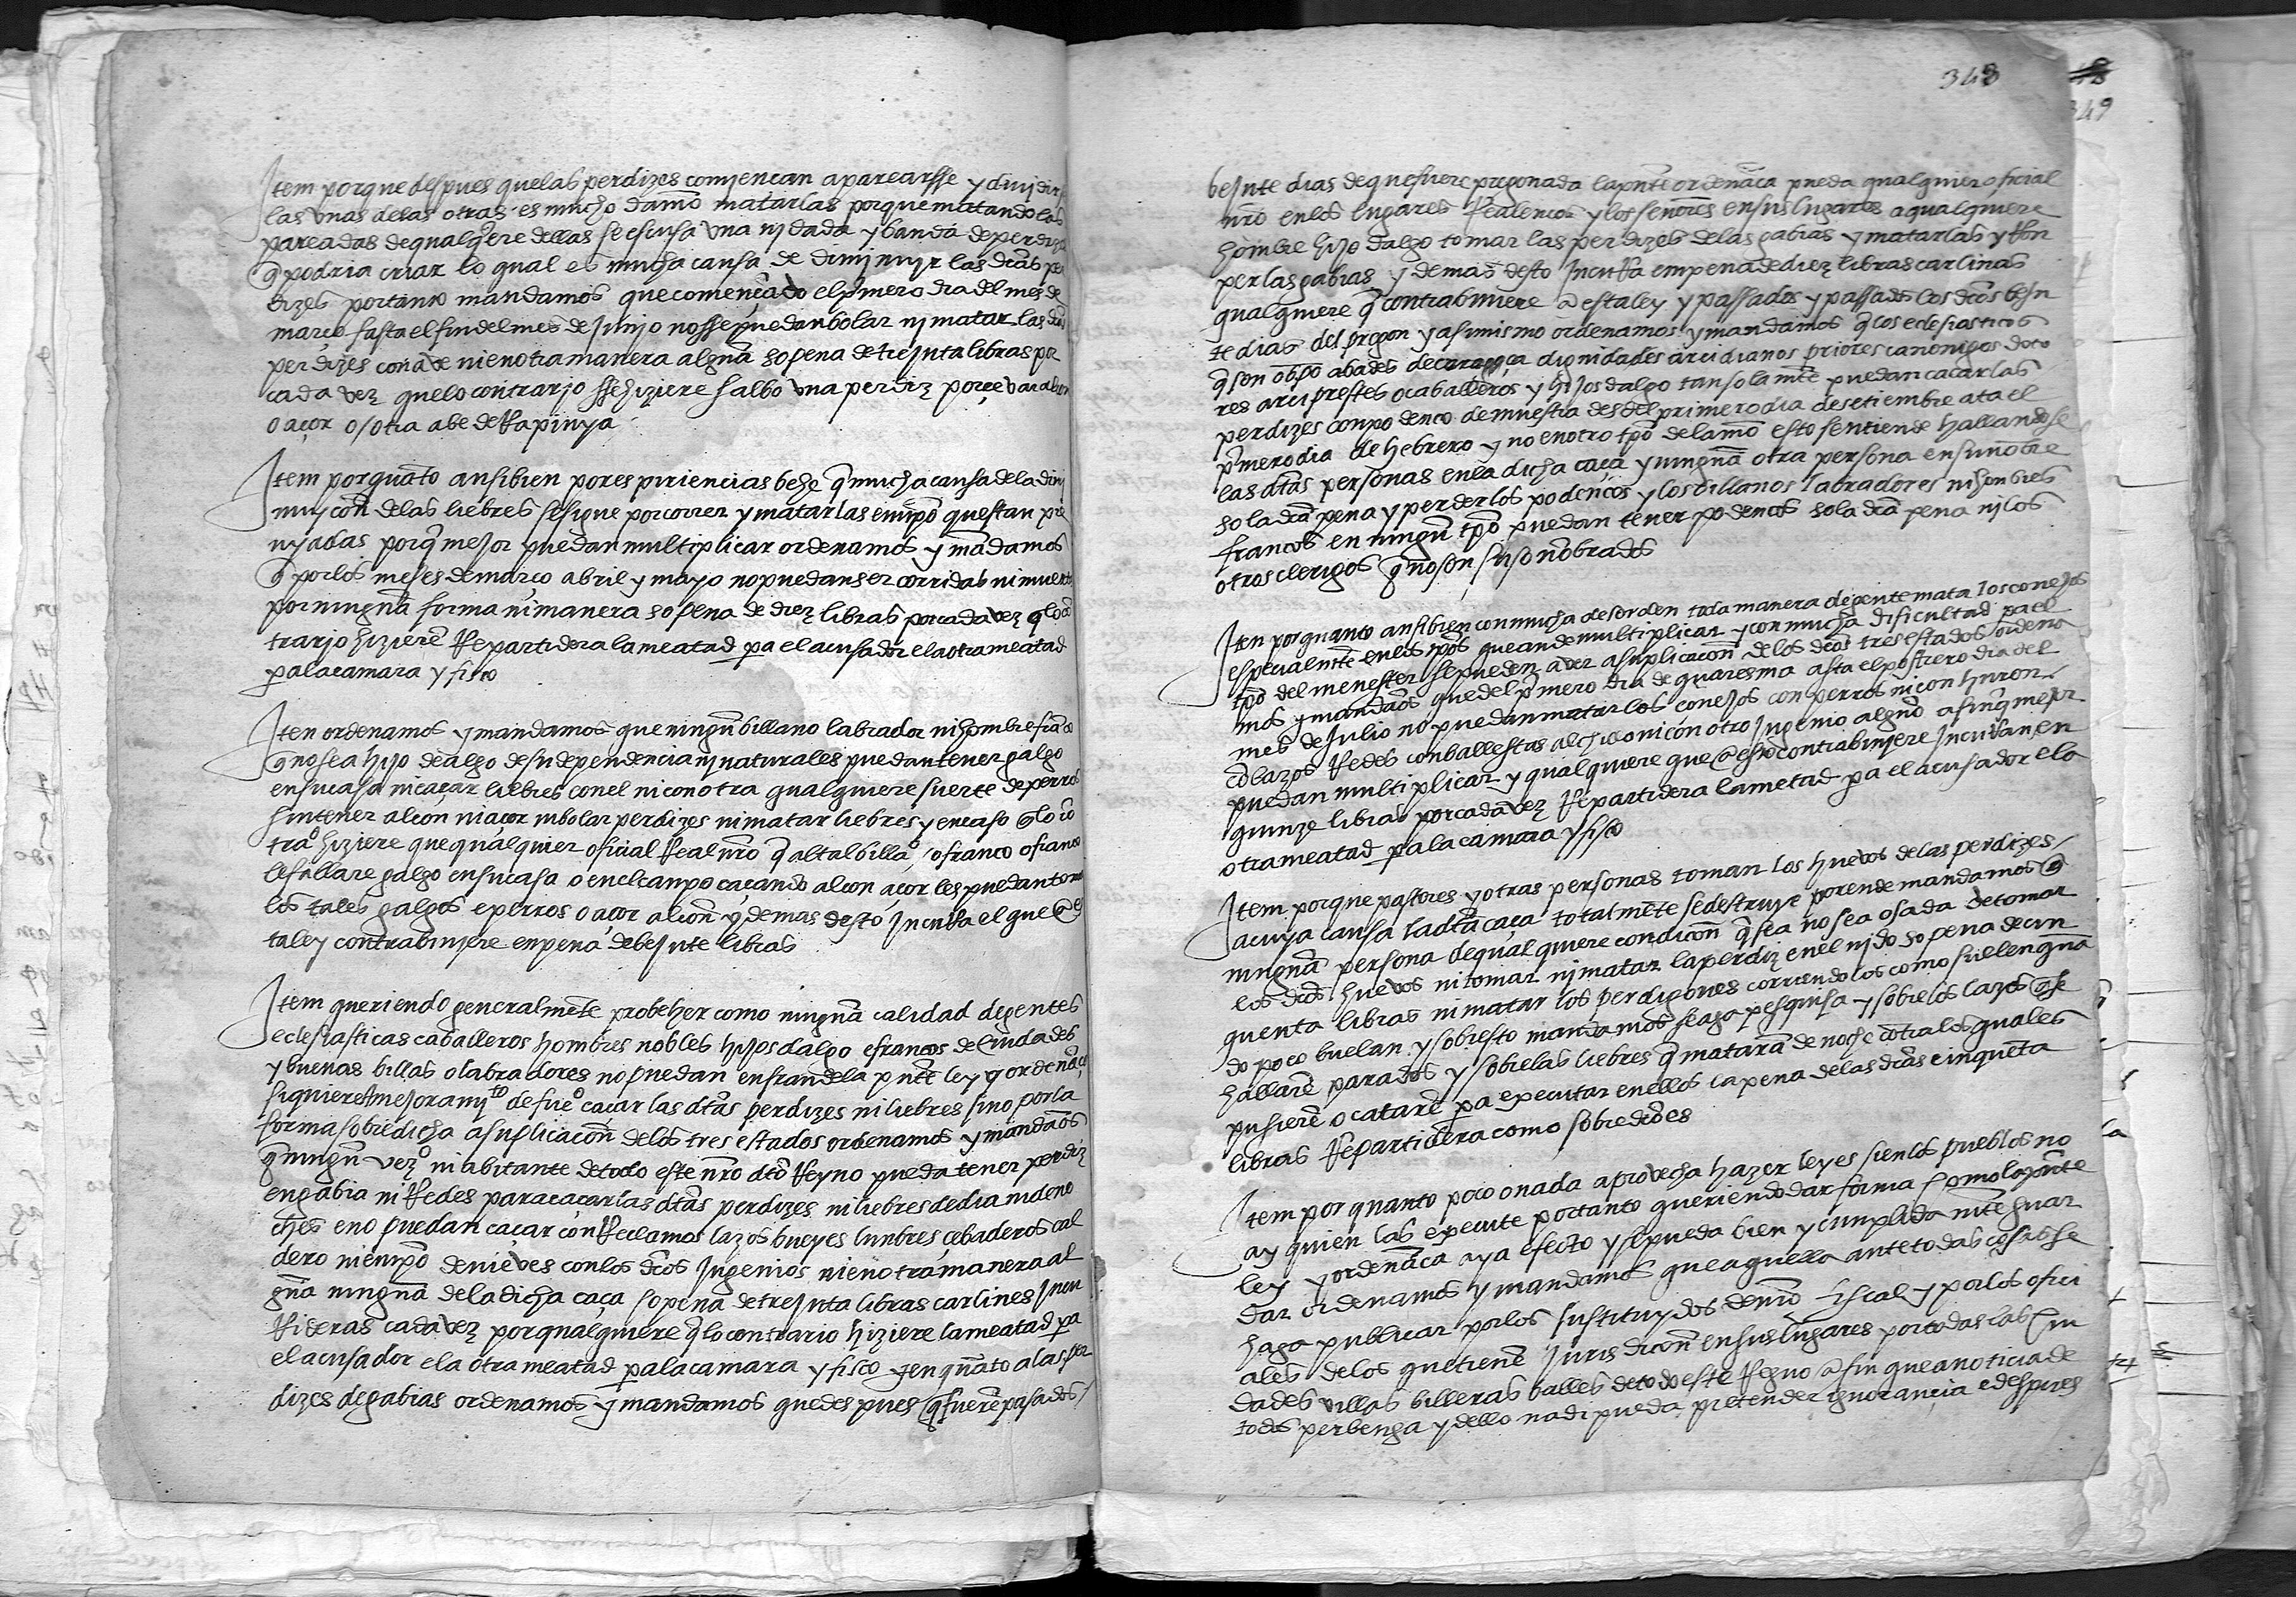 Item porque despues que las perdizes comiençan aparearsse y diuidirse
las vnas de las otras es mucho damo matarlas porque matando las
pareadas de qualqere dellas se escusa vna nidada y banda de perdizes
q podria criar lo qual es mucha causa de diminuyr las dias per
dizes portanto mandamos que començado el pmero dia del mes de
março fasta el fin del mes de Junio no sse puedan bolar ni matar las dias
perdizes con ave ni en otra manera alguna so pena de trejnta libras por
cada vez que lo contrarjo sse hiziere salbo vna perdiz por çevar alcon
o açor o otra abe de Rapinya
Item por quato ansibien por espiriencias behe q mucha causa de la dimi
nuycon de las liebres se sigue por correr y matarlas en tpo que stan pre
nyadas porq mejor puedan multiplicar ordenamos y madamos
q por los meses de março abril y mayo no puedan ser corridas ni muertas
por ninguna forma ni manera so pena de diez libras por cada vez q lo co
trarjo hiziere Repartidera la meatad pa el acusador e la otra meatad
pa la camara y fisco
Iten ordenamos y mandamos que ningun billano labrador ni hombre franco
q no sea hijo dealgo de su dependencia ni naturales puedan tener galgo
en su casa ni caçar liebres con el ni con otra qualquiere suerte de perros
sin tener alcon ni açor ni bolar perdizes ni matar liebres y en caso q lo co
trao hiziere que qualquier oficial Real nro q al tal billao o franco o franco
le fallare galgo en su casa o en el canpo caçando alcon açor les puedan tomar
los tales galgos e perros o açor alcon y demas desto Incurra el que a es
ta ley contrabinjere en pena de bejnte libras
Item queriendo generalmete probeher como ninguna calidad de gentes
eclesiasticas caballeros hombres nobles hijos dalgo e francos de Ciudades
y buenas billas o labradores no puedan en fran de la pnte ley y ordenaca
siquiere mejoramito de fueo caçar las dtas perdizes ni liebres sino por la
forma sobredicha a suplicacon de los tres estados ordenamos y mandaos
q ningun vezo ni abitante de todo este nro dto Reyno pueda tener perdiz
en gabia ni Redes para caçar las dtas perdizes ni liebres de dia ni de no
ches e no puedan caçar con Reclamos lazos bueyes lunbres çebaderos cal
dero ni en tpo de nieves con los dcos Ingenios ni en otra manera al
guna ninguna de la dicha caça so pena de trejnta libras carlines Incu
Rideras cada vez por qualquiere q lo contrario hiziere la meatad pa
el acusador e la otra meatad pa la camara y fisco y en quato a las per
dizes de gabias ordenamos y mandamos que despues q fuere pasados
348
349
bejnte dias de que fuere pregonada la pnte ordenaca pueda qualquier oficial
nro en los lugares Realencos y los senores en sus lugares a qualquiere
hombre hijo dalgo tomar las perdizes de las gabias y matarlas y Ron
per las gabias y demas desto Incurra en pena de diez libras carlinas
qualquiere q contrabiniere a esta ley y passados y passados los dcos bejn
te dias del pregon y asimismo ordenamos y mandamos q los eclesiasticos
q son obpo abades dignidades arcidianos priores canonigos doto
res arciprestes o caballeros y hijos dalgo tan solamte puedan caçar las
perdizes con podenco de muestra desdel primero dia de setiembre ata el
pmero dia de hebrero y no en otro tpo del amo esto sentiende hallandose
las dtas personas en la dicha caça y ninguna otra persona en su nobre
so la dca pena y perder los podencos y los billanos labradores ni honbres
francos en ningun tpo puedan tener podencos so la dca pena ni los
otros clerigos q no son suso nobrados
Iten por quanto ansibien con mucha desorden toda manera de gente mata los conejos
especialmte en los tpos que an de multiplicar y con mucha dificultad pa el
tpo del menester se pueden aver a suplicacon de los dcos tres estados ordena
mos y mandaos que del pmero dia de quaresma asta el postrero dia del
mes de Julio no puedan matar los conejos con perros ni con huron
co lazos Redes con ballestas al chillo ni con otro Ingenio alguno a fin q mejor
puedan multiplicar y qualquiere que a esto contrabinjere Incurran en
quinze libras por cada vez Repartidera la metad pa el acusador e la
otra meatad pa la camara y fisco
Item porque pastores y otras personas toman los huevos de las perdizes
a cuya causa la dta caça totalmete se destruye por ende mandamos q
ninguna persona de qualquiere condicon q sea no sea osada de tomar
los dcos huevos ni tomar ni matar la perdiz en el nido so pena de cin
quenta libras ni matar los perdigones corriendolos como suelen qua
do poco buelan y sobresto mandamos se aga pesquisa y sobre los lazos q se
hallare parados y sobre las liebres q matara de noche cotra los quales
pusiere o catare pa executar en ellos la pena de las dcas cinqueta
libras Repartidera como sobre dcos es
Item por quanto poco o nada aprovecha hazer leyes si en los pueblos no
ay quien las execute portanto queriendo dar forma como lo pnte
ley y ordenaca aya efecto y se pueda bien y cunplidamte guar
dar ordenamos y mandamos que aquella ante todas cosas se
haga publicar por los sustituydos de nro fiscal y por los ofici
ales de los que tiene Jurisdicon en sus lugares por todas las Ciu
dades villas billeras balles de todo este Regno a fin que a noticia de
todos perbenga y dello nadi pueda pretender ignorancia e despues